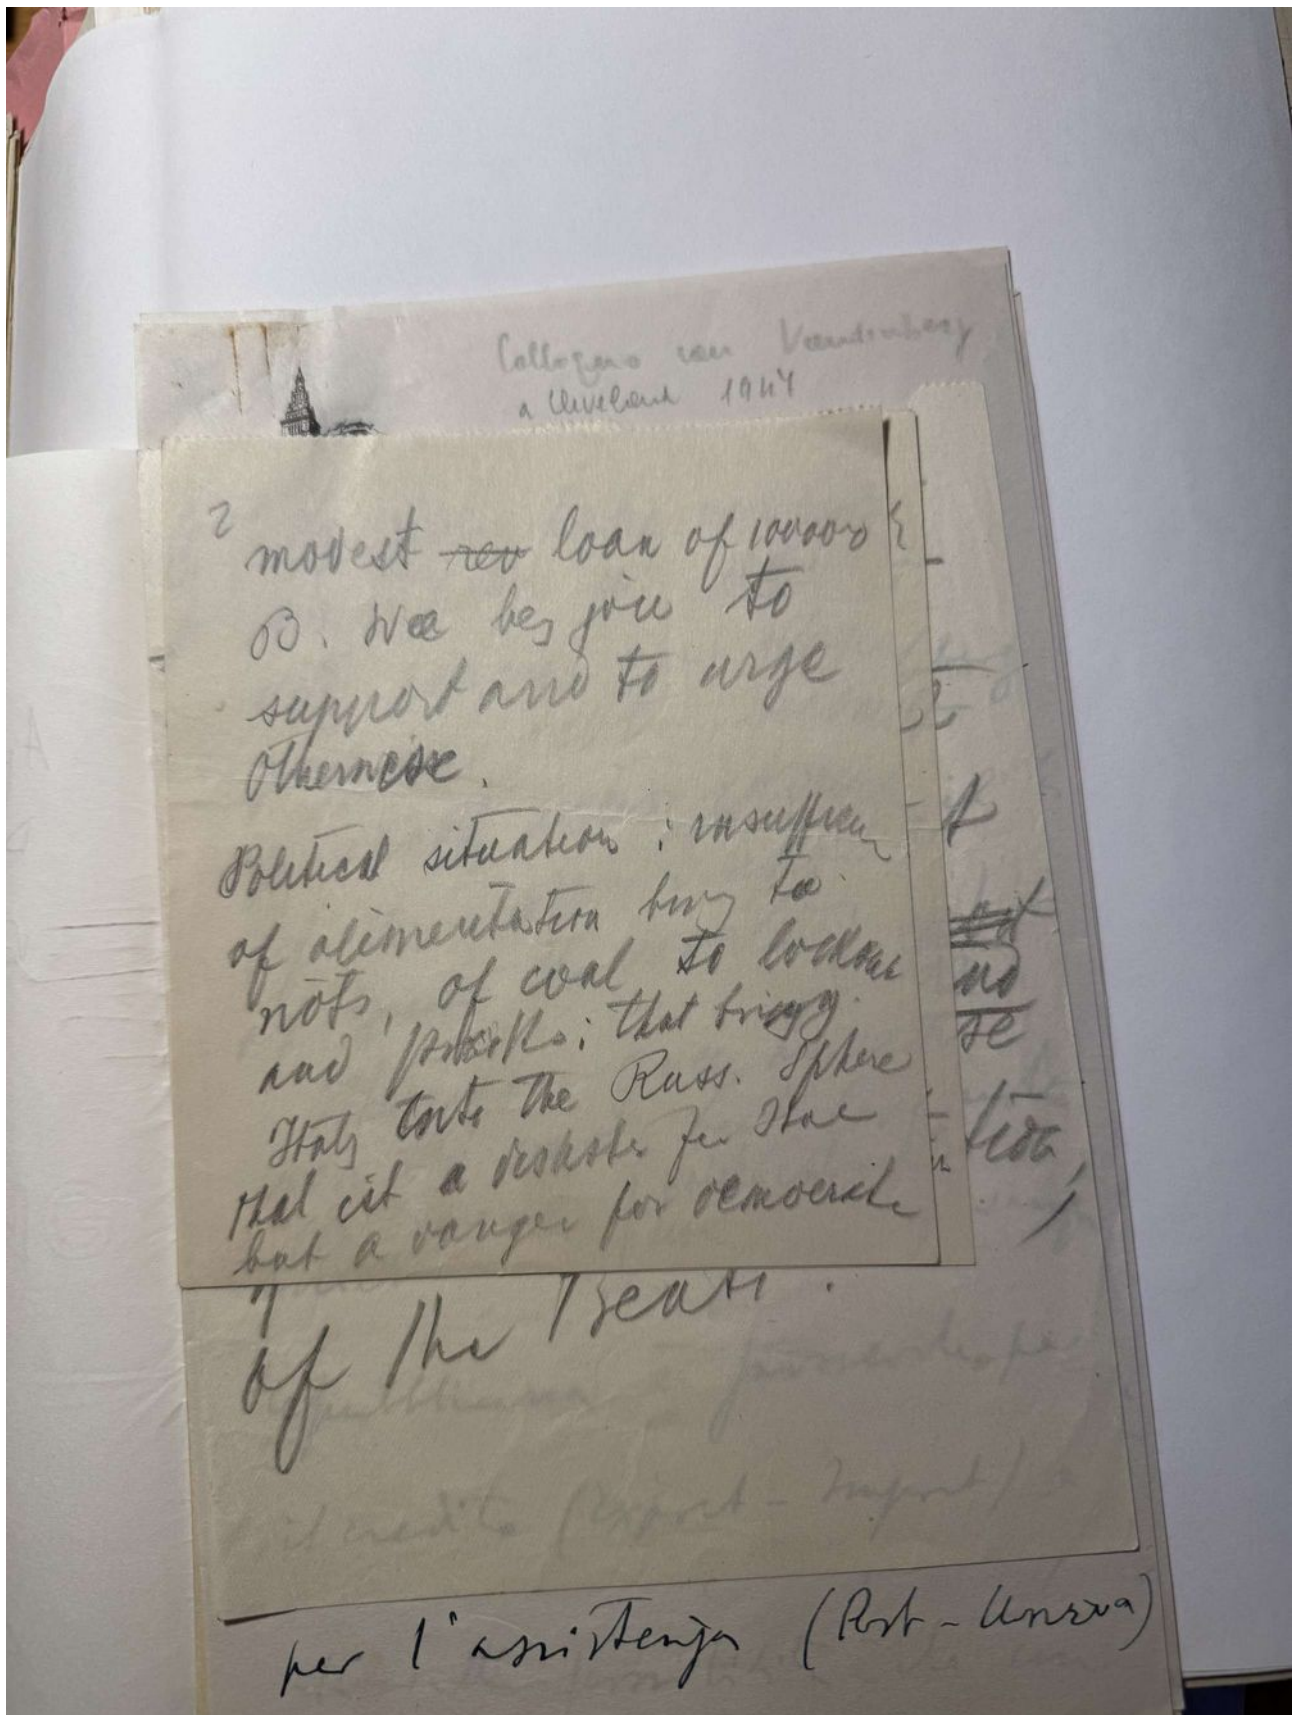 Colloquio con Vandenberg
a Cleveland 1947
2
modest rev loan of 100000
B. Wee beg you to
support and to urge
otherwise.
Political situation : insufficien
of alimentation bring to
riots, of coal to lockout
and ; that bring
Italy into the Russ. Sphere
that ist a disaster for Itae
but a danger for democrati
t
no
se
tion,
of the Treati.
il credito (Export - Import) e
per l'assistenza (Post-Unrra)